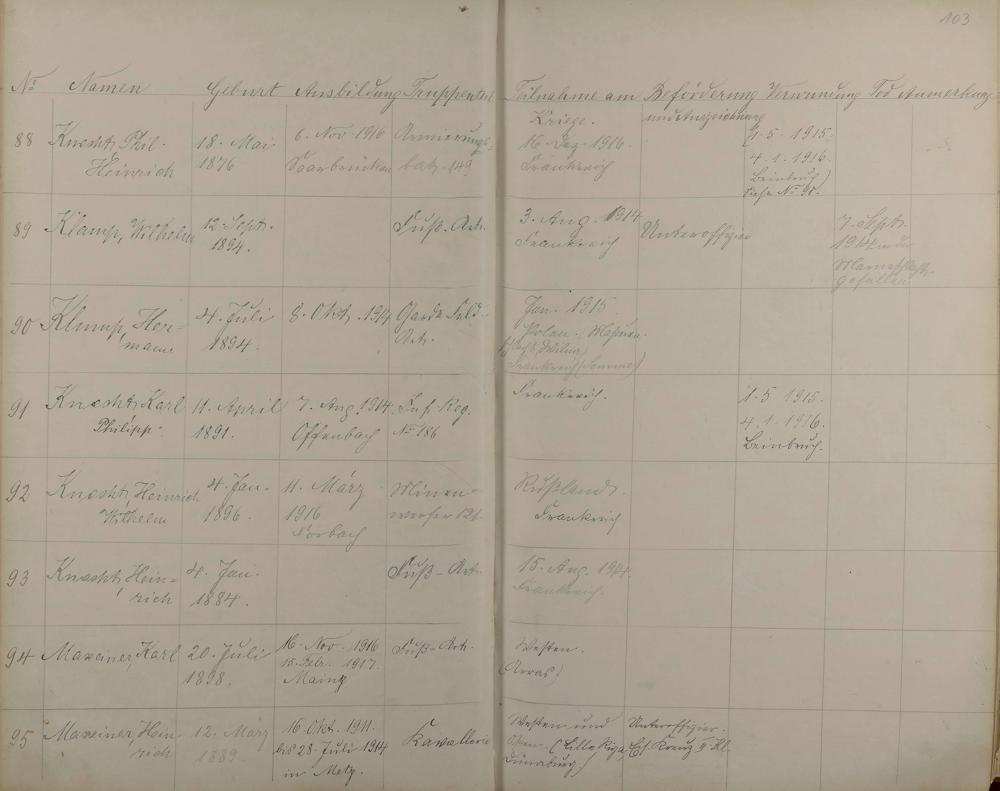 103
No Namen Geburt Ausbildung Truppenteil Teilnahme am Beförderung Verwundung Tod Anmerkung
Kriege. und Auszeichnung
88 Knecht, Phil. 18. Mai 6. Nov 1916 Armierungs- 16. Dez. 1916. 9. 5. 1915.
Heinrich 1876 Saarbrücken bat. 149 Frankreich 4. 1. 1916.
Beinbruch)
Siehe No 91.
89 Klamp, Wilhelm 12. Sept. Fuß. Art. 3. Aug. 1914 Unteroffizier 7. Sept.
1894. Frankreich 1914 in der
Marneschlacht
gefallen
90 Klump, Her- 4. Juli 8. Okt. 1914 Garde Feld- Jan. 1915
mann 1894. Art. Polen. Masuren.
Wilna
Frankreich (Somme)
91 Knecht, Karl 11. April 7. Aug. 1914 Inf. Reg. Frankreich. 1. 5 1915.
Philipp. 1891. Offenbach No 186 4. 1. 1916.
Beinbruch.
92 Knecht, Heinrich 4. Jan. 11. März Minen- Rußland.
Wilhelm 1896. 1916 werfer 121. Frankreich
Forbach
93 Knecht, Hein- 4. Jan. Fuß-Art. 15. Aug. 1914.
rich 1884. Frankreich.
94 Maxeiner, Karl 20. Juli 16. Nov. 1916 Fuß-Art. Westen.
1898. 15. Febr. 1917. (Arras)
Mainz
95 Maxeiner, Hein 12. März 16. Okt. 1911. Kavallerie Westen und Unteroffizier.
rich 1889 bis 28. Juli 1914 Osten. (Lille Riga, Eis. Kreuz 2. Kl.
in Metz. Dünaburg)